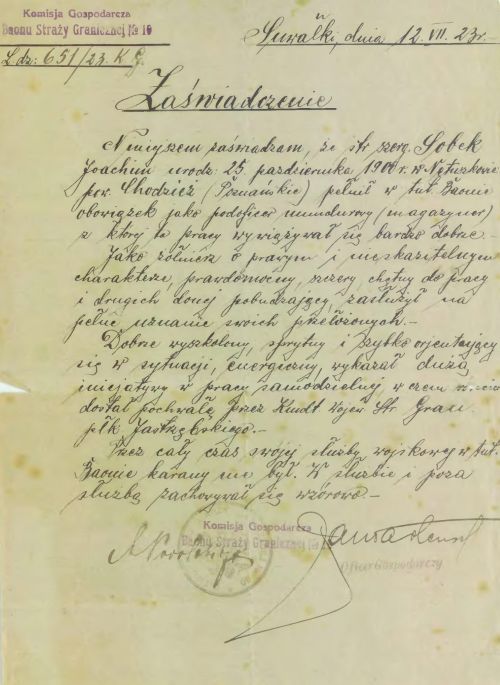 Komisja Gospodarcza
Baonu Straży Granicznej № 10
L.dz: 651/23. K.G.
Suwałki, dnia 12. VII. 23 r.
Zaświadczenie
Niniejszem zaświadzam, że str. szereg. Sobek
Joachim urodz: 25 października 1900 r. w
pow. Chodzież (Poznańskie) pełnił w tut. Baonie
obowiązek jako podoficer mundurowy (magazynier)
z której to pracy wywiązywał się bardzo dobrze.-
Jako żołnierz o prawym i nieskazitelnym
charakterze prawdomówny, szczery, chętny do pracy
i drugich do niej pobudzający, zasłużył na
pełne uznanie swoich przełożonych.-
Dobrze wyszkolony, sprytny i szybko orjentujący
się w sytuacji, energiczny, wykazał dużą
inicjatywę w pracy samodzielnej w czem
dostał pochwałę przez Kmdt Wojew. Str. Gran.
płk Jastrzębskiego.-
Przez cały czas swojej służby wojskowej w tut.
Baonie karany nie był. W służbie i poza
służbą zachowywał się wzorowo.-
Komisja Gospodarcza
Baonu Straży Granicznej № 10
Oficer Gospodarczy